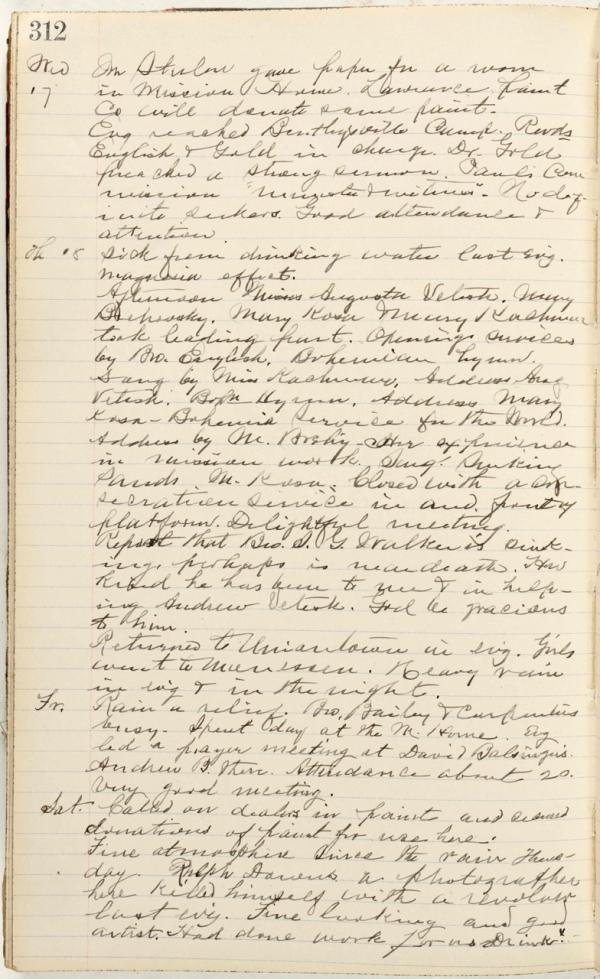 312
Wed Mr Sterlow gave paper for a room
17 in Mission Home. Lawrence Paint
Co will donate some paint.
Evg reached Bentleysville Camp. Revds
English & Gold in charge. Dr. Gold
preached a strong sermon. Paul's Com
mission "minister & witness". No def-
inite seekers. Good attendance &
attention.
Th 18 Sick from drinking water last evg.
Magnesia effect.
Afternoon Miss Augusta Vetesk. Mary
Mary Kosa & Mary Kachmar
took leading part. Opening services
by Bro. English. Bohemian hymn.
Sang by Miss Kachmar. Address Aug
Vetesk. Boh Hymn. Address Mary
Kosa - Bohemia Service for the Word.
Address by M. - Her experience
in mission work. Sung: Sinking
Sands. M. Kosa. Closed with a con-
secration service in and front of
platform. Delightful meeting.
Report that Bro. S. G. Walker is sink-
ing, perhaps is near death. How
kind he has been to me & in help-
ing Andrew Vetesk. God be gracious
to him.
Returned to Uniontown in evg. Girls
went to Monessen. Heavy rain
in evg & in the night.
Fr. Rain a relief. Bro. Bailey & Carpenters
busy. Spent day at the M. Home. Evg
led a prayer meeting at David Balsingers.
Andrew B. there. Attendance about 20.
Very good meeting.
Sat. Called on dealers in paint and secured
donations of paint for use here.
Fine atmosphere since the rain Thurs-
day. Ralph a photographer
here killed himself with a revolver
last evg. Fine looking and good
artist. Had done work for us Drink.